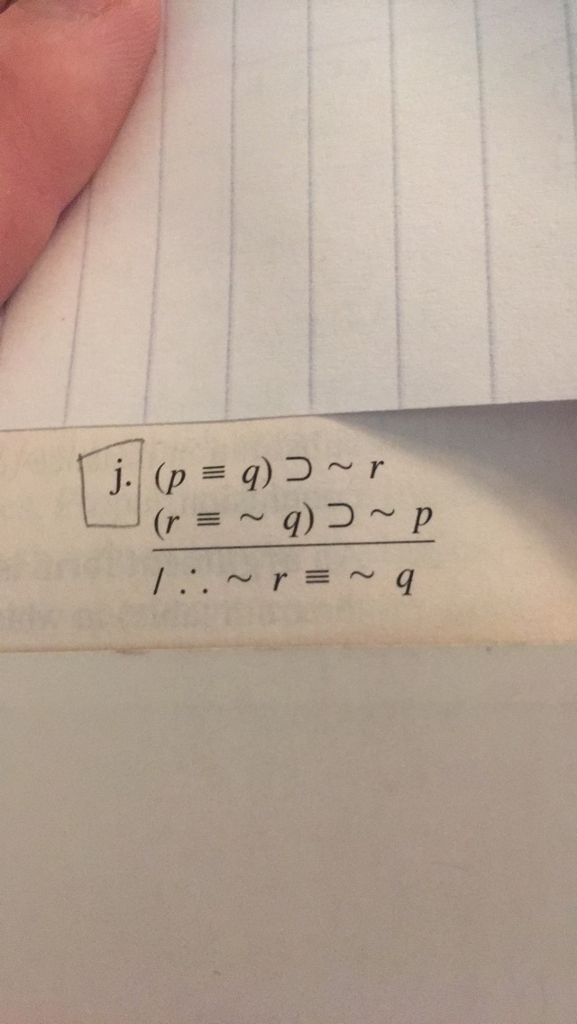 j. (p ≡ q) ⊃ ~ r
(r ≡ ~ q) ⊃ ~ p
/ ∴ ~ r ≡ ~ q